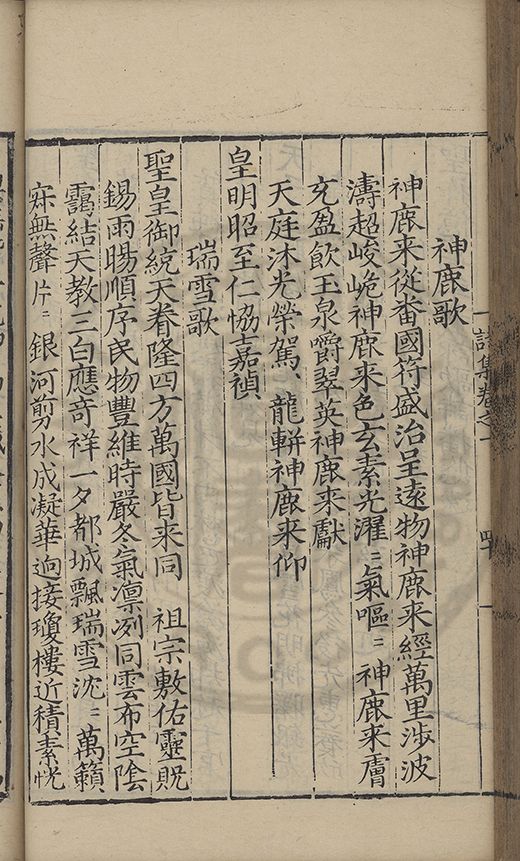 神鹿歌
神鹿来從畨國符盛治呈遠物神鹿来經萬里渉波
濤超峻峗神鹿来色玄素光濯〻氣嘔〻神鹿来膚
充盈飲玉泉嚼翠英神鹿来獻
天庭沐光榮駕龍軿神鹿来仰
皇明昭至仁協嘉禎
瑞雪歌
聖皇御統天眷隆四方萬國皆来同 祖宗敷佑靈貺
錫雨暘順序民物豐維時嚴冬氣凛冽同雲布空陰
靄結天教三白應奇祥一夕都城飄瑞雪沈〻萬籟
寂無聲片〻銀河剪水成凝華逈接瓊樓近積素恍